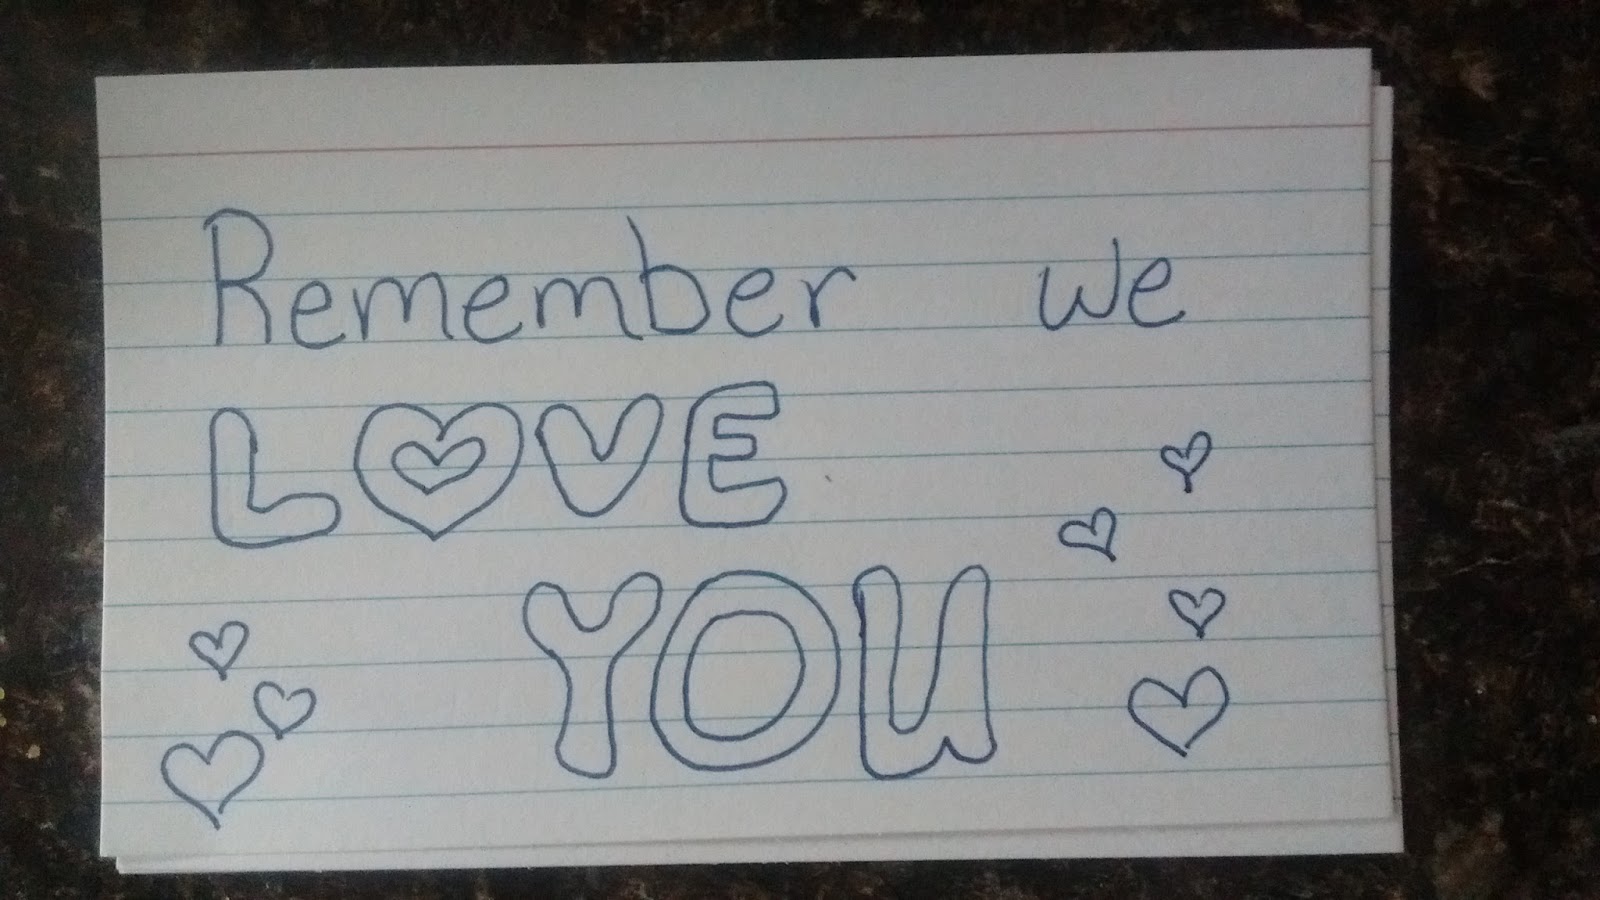 Remember we
LOVE
YOU